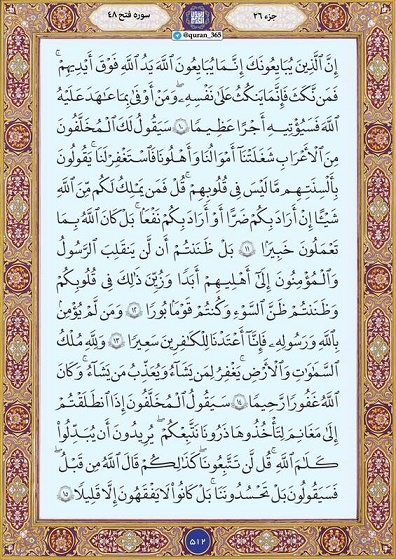 جزء ۲۶
سوره فتح ۴۸
@quran_365
إِنَّ ٱلَّذِينَ يُبَايِعُونَكَ إِنَّمَا يُبَايِعُونَ ٱللَّهَ يَدُ ٱللَّهِ فَوْقَ أَيْدِيهِمْ ۚ
فَمَن نَّكَثَ فَإِنَّمَا يَنكُثُ عَلَىٰ نَفْسِهِۦ ۖ وَمَنْ أَوْفَىٰ بِمَا عَٰهَدَ عَلَيْهُ
ٱللَّهَ فَسَيُؤْتِيهِ أَجْرًا عَظِيمًا ۝١٠ سَيَقُولُ لَكَ ٱلْمُخَلَّفُونَ
مِنَ ٱلْأَعْرَابِ شَغَلَتْنَآ أَمْوَٰلُنَا وَأَهْلُونَا فَٱسْتَغْفِرْ لَنَا ۚ يَقُولُونَ
بِأَلْسِنَتِهِم مَّا لَيْسَ فِى قُلُوبِهِمْ ۚ قُلْ فَمَن يَمْلِكُ لَكُم مِّنَ ٱللَّهِ
شَيْـًٔا إِنْ أَرَادَ بِكُمْ ضَرًّا أَوْ أَرَادَ بِكُمْ نَفْعًۢا ۚ بَلْ كَانَ ٱللَّهُ بِمَا
تَعْمَلُونَ خَبِيرًۢا ۝١١ بَلْ ظَنَنتُمْ أَن لَّن يَنقَلِبَ ٱلرَّسُولُ
وَٱلْمُؤْمِنُونَ إِلَىٰٓ أَهْلِيهِمْ أَبَدًا وَزُيِّنَ ذَٰلِكَ فِى قُلُوبِكُمْ
وَظَنَنتُمْ ظَنَّ ٱلسَّوْءِ وَكُنتُمْ قَوْمًۢا بُورًا ۝١٢ وَمَن لَّمْ يُؤْمِنۢ
بِٱللَّهِ وَرَسُولِهِۦ فَإِنَّآ أَعْتَدْنَا لِلْكَٰفِرِينَ سَعِيرًا ۝١٣ وَلِلَّهِ مُلْكُ
ٱلسَّمَٰوَٰتِ وَٱلْأَرْضِ ۚ يَغْفِرُ لِمَن يَشَآءُ وَيُعَذِّبُ مَن يَشَآءُ ۚ وَكَانَ
ٱللَّهُ غَفُورًا رَّحِيمًا ۝١٤ سَيَقُولُ ٱلْمُخَلَّفُونَ إِذَا ٱنطَلَقْتُمْ
إِلَىٰ مَغَانِمَ لِتَأْخُذُوهَا ذَرُونَا نَتَّبِعْكُمْ ۖ يُرِيدُونَ أَن يُبَدِّلُوا۟
كَلَٰمَ ٱللَّهِ ۚ قُل لَّن تَتَّبِعُونَا كَذَٰلِكُمْ قَالَ ٱللَّهُ مِن قَبْلُ ۖ
فَسَيَقُولُونَ بَلْ تَحْسُدُونَنَا ۚ بَلْ كَانُوا۟ لَا يَفْقَهُونَ إِلَّا قَلِيلًا ۝١٥
۵۱۲